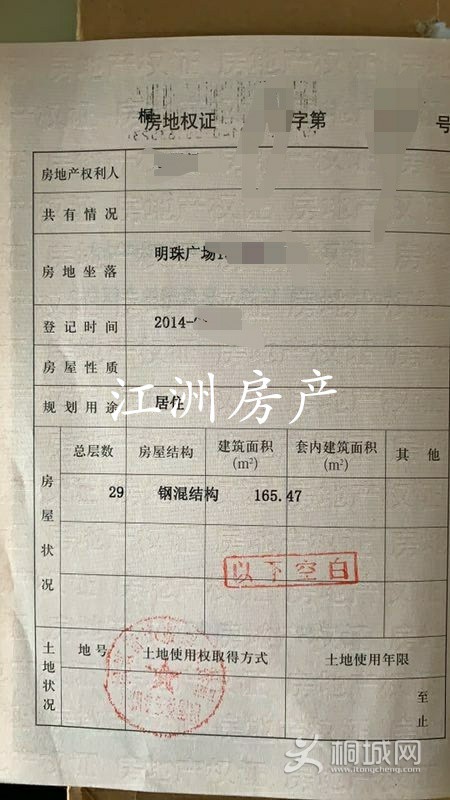 桐
房地权证 字第 号
房地产权利人
共有情况
房地坐落 明珠广场
登记时间 2014-
房屋性质
规划用途 居住
江洲房产
房屋状况
总层数 房屋结构 建筑面积(m²) 套内建筑面积(m²) 其他
29 钢混结构 165.47
以下空白
土地状况
地号 土地使用权取得方式 土地使用年限
至
止
桐城网
www.itongcheng.com